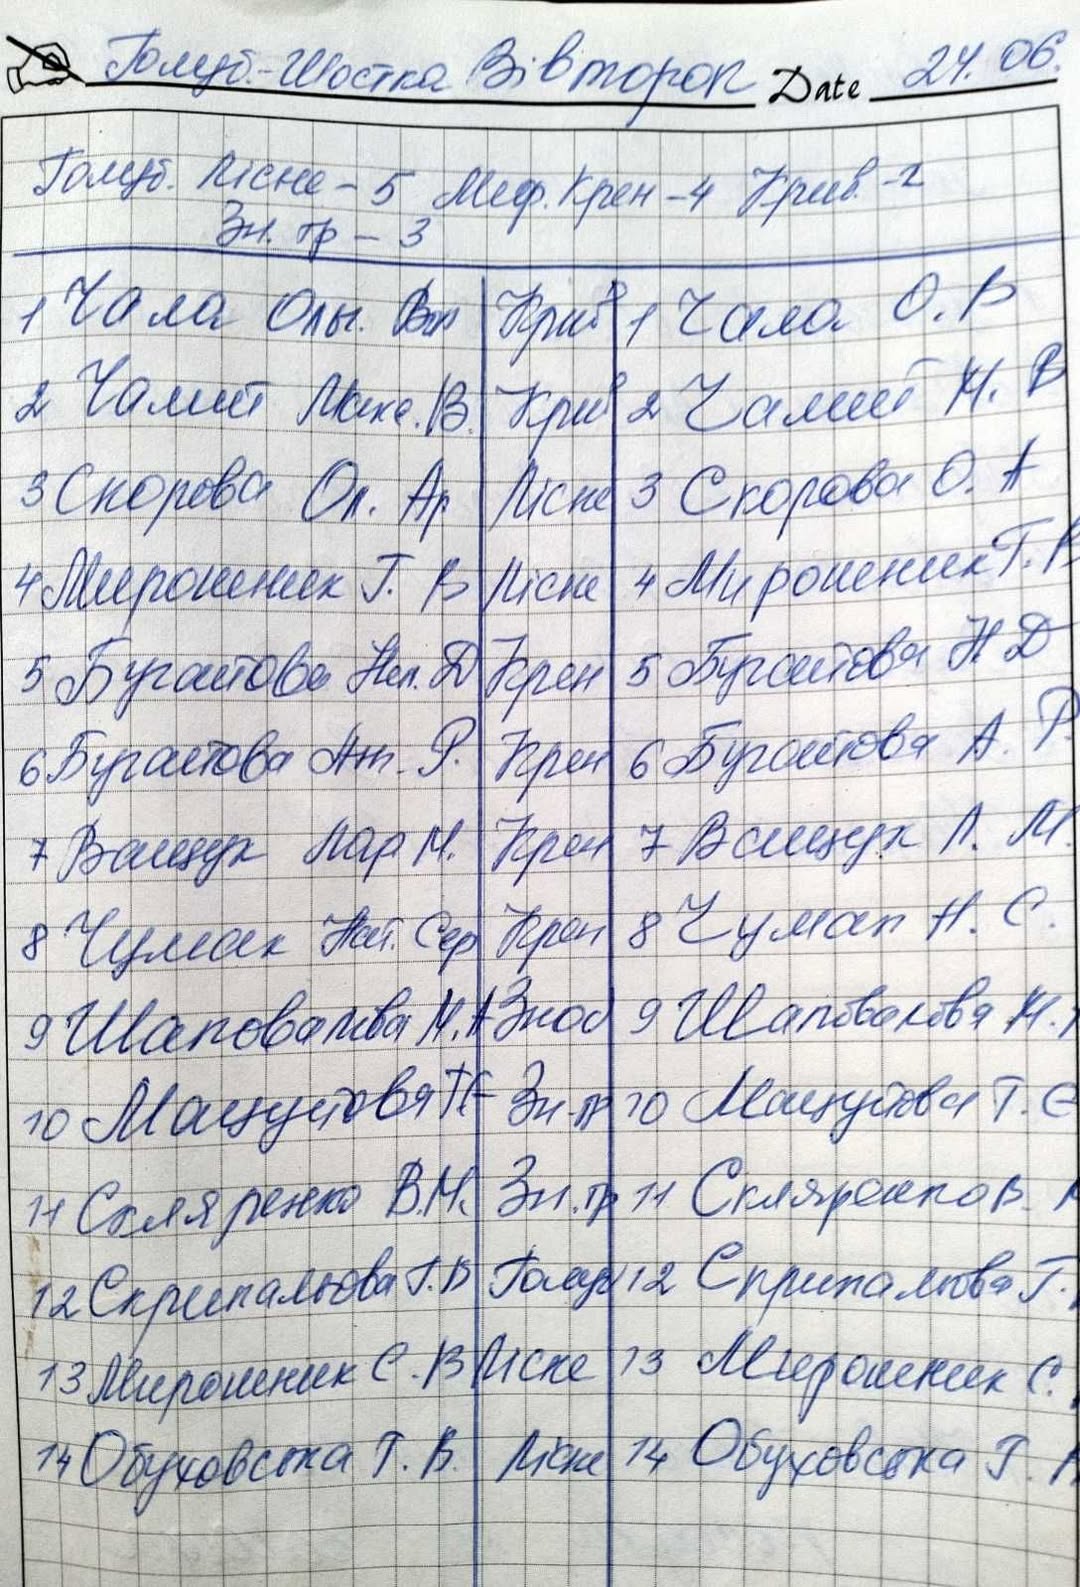 Голуб.-Шостка Вівторок Date 24.06.
Голуб. Лісне - 5 Меф. Крен - 4 Крив. - 2
Зн. тр - 3
1 Чала Оль. Вік Крив 1 Чала О. В
2 Чалий Мик. В. Крив 2 Чалий М. В
3 Скорова Ол. Ар. Лісне 3 Скорова О. А
4 Мирошник Г. В Лісне 4 Мирошник Г. В
5 Бугайова Нел. Д Крен 5 Бугайова Н Д
6 Бугайова Ан. Р. Крен 6 Бугайова А. Р.
7 Ващук Лар М. Крен 7 Ващук Л. М.
8 Чумак Нат. Сер Крен 8 Чумак Н. С.
9 Шаповалова М. А Зноб 9 Шаповалова М.
10 Мацуєтова Т Є Зн. тр 10 Мацуєтова Т. Є
11 Скляренко В.М. Зн. тр 11 Скляренко В.
12 Скрипальова Г. В Голуб 12 Скрипальова Г.
13 Мирошник С. В Лісне 13 Мирошник С.
14 Обуховська Г. В. Лісне 14 Обуховська Г.